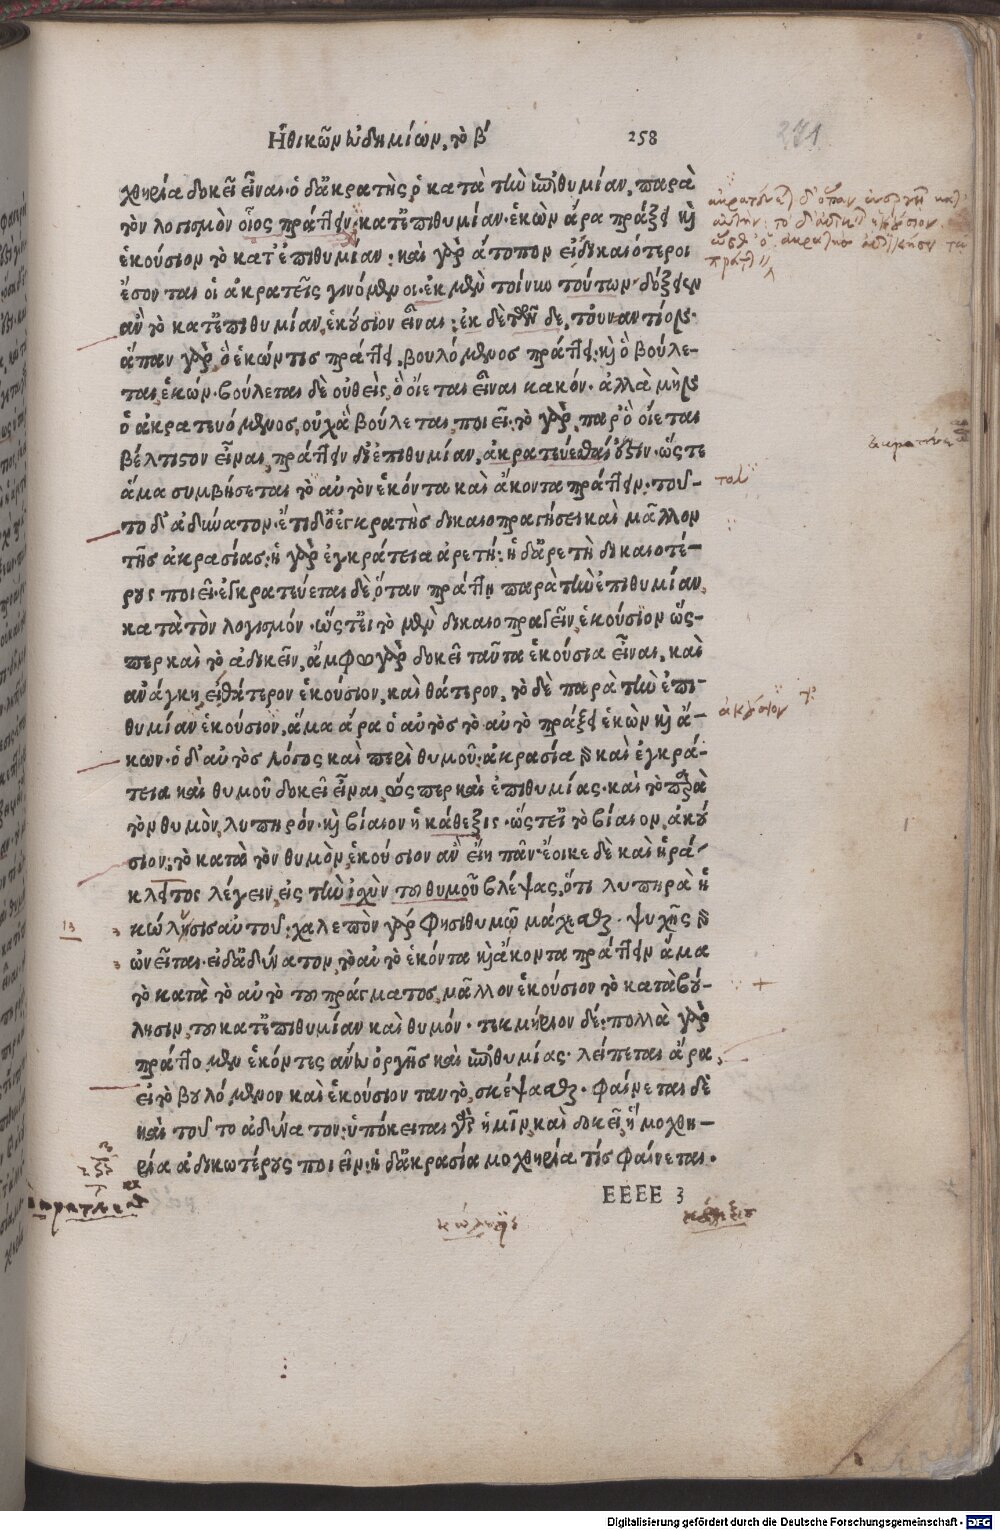 Ἠθικῶν εὐδημίων, τὸ β΄ 258
271
χθηρία δοκεῖ εἶναι· ὁ δ' ἀκρατὴς ὁ κατὰ τὴν ἐπιθυμίαν, παρὰ
τὸν λογισμὸν οἷος πράττειν κατ' ἐπιθυμίαν· ἑκὼν ἄρα πράξει καὶ
ἑκούσιον τὸ κατ' ἐπιθυμίαν· καὶ γὰρ ἄτοπον εἰ δικαιότεροι
ἔσονται οἱ ἀκρατεῖς γινόμενοι· ἐκ μὲν τοίνυν τούτων δόξειεν
ἂν τὸ κατ' ἐπιθυμίαν, ἑκούσιον εἶναι· ἐκ δὲ τῶν δε, τοὐναντίον·
ἅπαν γὰρ ὃ ἑκών τις πράττει, βουλόμενος πράττει· καὶ ὃ βούλε-
ται, ἑκών. βούλεται δὲ οὐθεὶς ὃ οἴεται εἶναι κακόν. ἀλλὰ μὴν
ὁ ἀκρατευόμενος, οὐχ ἃ βούλεται, ποιεῖ· τὸ γὰρ παρ' ὃ οἴεται
βέλτιστον εἶναι, πράττειν δι' ἐπιθυμίαν, ἀκρατεύεσθαί ἐστιν. ὥστε
ἅμα συμβήσεται τὸ αὐτὸν ἑκόντα καὶ ἄκοντα πράττειν· τοῦ-
το δ' ἀδύνατον· ἔτι δ' ὁ ἐγκρατὴς δικαιοπραγήσει καὶ μᾶλλον
τῆς ἀκρασίας· ἡ γὰρ ἐγκράτεια ἀρετή· ἡ δ' ἀρετὴ δικαιοτέ-
ρους ποιεῖ· ἐγκρατεύεται δὲ ὅταν πράττῃ παρὰ τὴν ἐπιθυμίαν,
κατὰ τὸν λογισμόν. ὥστ' εἰ τὸ μὲν δικαιοπραγεῖν, ἑκούσιον ὥσ-
περ καὶ τὸ ἀδικεῖν, ἄμφω γὰρ δοκεῖ ταῦτα ἑκούσια εἶναι, καὶ
ἀνάγκη, εἰ θάτερον ἑκούσιον, καὶ θάτερον, τὸ δὲ παρὰ τὴν ἐπι-
θυμίαν ἑκούσιον, ἅμα ἄρα ὁ αὐτὸς τὸ αὐτὸ πράξει ἑκὼν καὶ ἄ-
κων· ὁ δ' αὐτὸς λόγος καὶ περὶ θυμοῦ· ἀκρασία γὰρ καὶ ἐγκρά-
τεια καὶ θυμοῦ δοκεῖ εἶναι, ὥσπερ καὶ ἐπιθυμίας· καὶ τὸ παρὰ
τὸν θυμὸν, λυπηρόν· καὶ βίαιον ἡ κάθεξις· ὥστ' εἰ τὸ βίαιον, ἀκού
σιον, τὸ κατὰ τὸν θυμὸν, ἑκούσιον ἂν εἴη πᾶν· ἔοικε δὲ καὶ ἡρά-
κλειτος λέγειν, εἰς τὴν ἰχὺν τοῦ θυμοῦ βλέψας, ὅτι λυπηρὰ ἡ
κώλυσις αὐτοῦ· χαλεπὸν γάρ φησι θυμῷ μάχεσθαι· ψυχῆς γὰρ
ὠνεῖται· εἰ δ' ἀδύνατον, τὸ αὐτὸ ἑκόντα καὶ ἄκοντα πράττειν ἅμα
τὸ κατὰ τὸ αὐτὸ τοῦ πράγματος, μᾶλλον ἑκούσιον τὸ κατὰ βού-
λησιν, τοῦ κατ' ἐπιθυμίαν καὶ θυμόν. τεκμήριον δέ· πολλὰ γὰρ
πράττομεν ἑκόντες ἄνευ ὀργῆς καὶ ἐπιθυμίας· λείπεται ἄρα,
εἰ τὸ βουλόμενον καὶ ἑκούσιον ταυτὸ, σκέψασθαι. φαίνεται δὲ
καὶ τοῦτο ἀδύνατον· ὑπόκειται γὰρ ἡμῖν, καὶ δοκεῖ, ἡ μοχθη-
ρία ἀδικωτέρους ποιεῖν· ἡ δ' ἀκρασία μοχθηρία τίς φαίνεται.
EEEE 3
τοῦ
ἀκούσιον
κώλυσις
κάθεξις
Digitalisierung gefördert durch die Deutsche Forschungsgemeinschaft - DFG